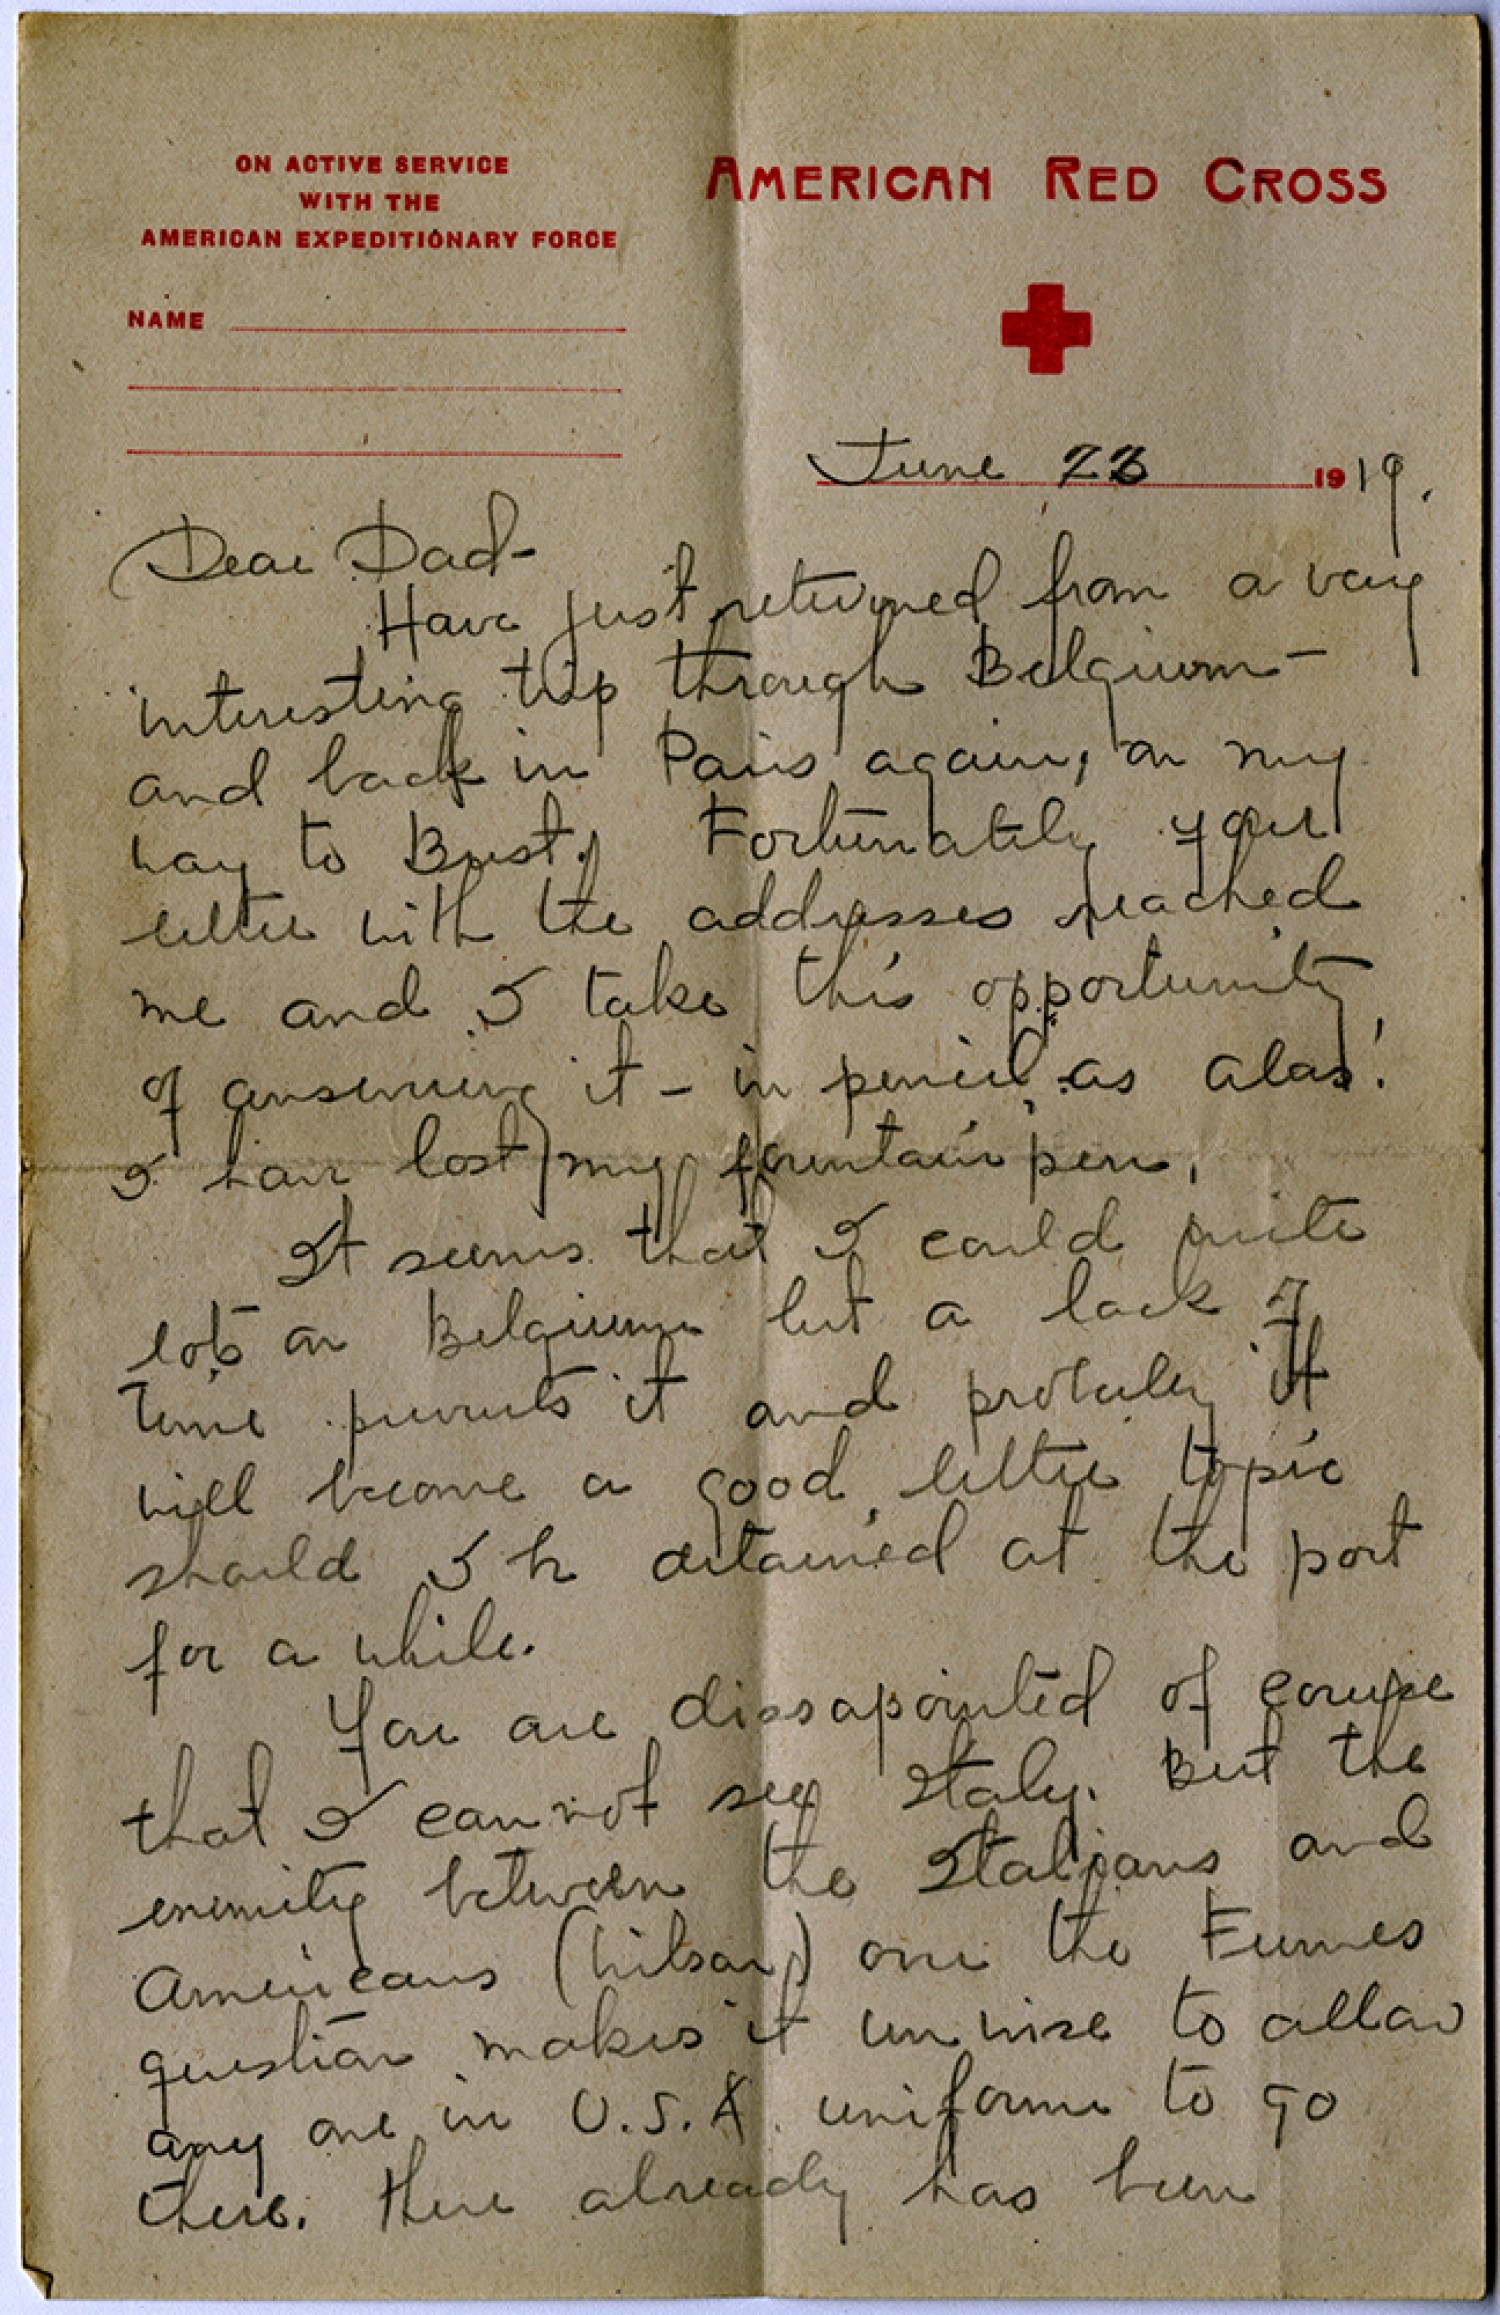 ON ACTIVE SERVICE
WITH THE
AMERICAN EXPEDITIONARY FORCE
NAME
AMERICAN RED CROSS
June 23 1919.
Dear Dad-
Have just returned from a very
interesting trip through Belgium -
and back in Paris again, on my
way to Brest. Fortunately your
letter with the addresses reached
me and I take this opportunity
of answering it - in pencil, as alas!
I have lost my fountain pen.
It seems that I could write
lots on Belgium but a lack of
time prevents it and probably it
will become a good letter topic
should I be detained at the port
for a while.
You are dissapointed of course
that I cannot see Italy. But the
enemity between the Italians and
Americans (Wilson) over the Fiumes
question makes it unwise to allow
any one in U.S.A. uniform to go
there. There already has been